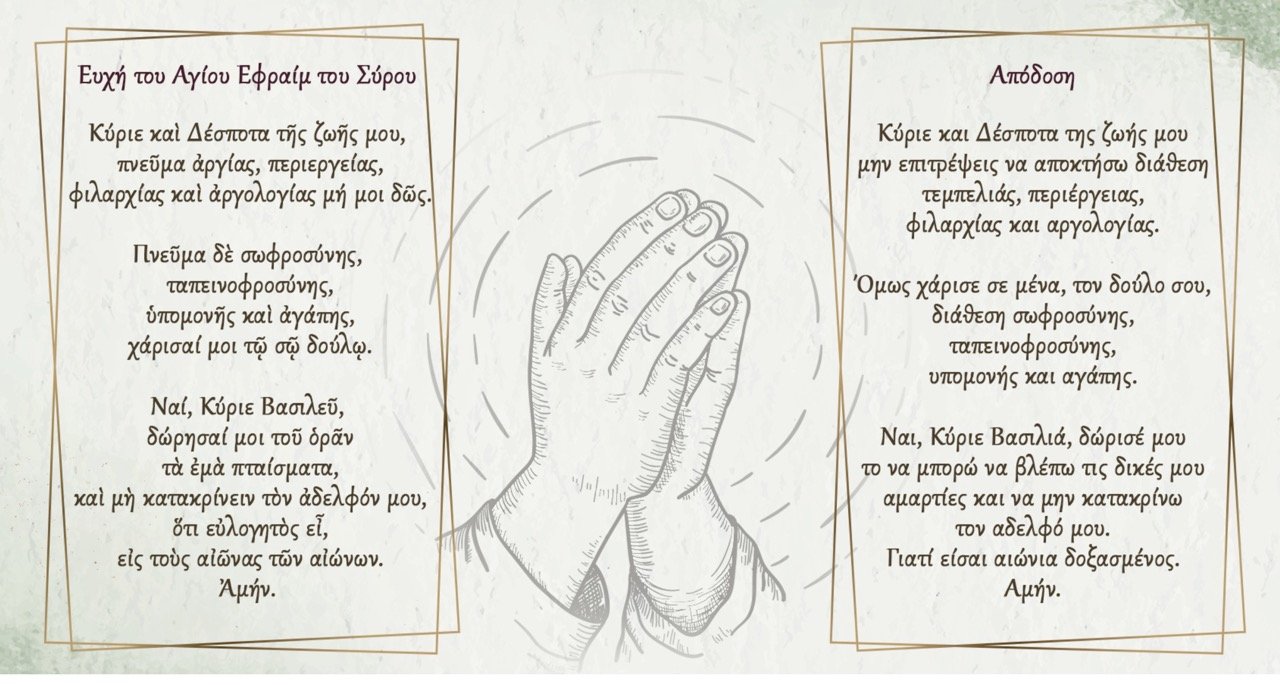 Ευχή του Αγίου Εφραίμ του Σύρου
Κύριε καὶ Δέσποτα τῆς ζωῆς μου,
πνεῦμα ἀργίας, περιεργείας,
φιλαρχίας καὶ ἀργολογίας μή μοι δῶς.
Πνεῦμα δὲ σωφροσύνης,
ταπεινοφροσύνης,
ὑπομονῆς καὶ ἀγάπης,
χάρισαί μοι τῷ σῷ δούλῳ.
Ναί, Κύριε Βασιλεῦ,
δώρησαί μοι τοῦ ὁρᾶν
τὰ ἐμὰ πταίσματα,
καὶ μὴ κατακρίνειν τὸν ἀδελφόν μου,
ὅτι εὐλογητὸς εἶ,
εἰς τοὺς αἰῶνας τῶν αἰώνων.
Ἀμήν.
Απόδοση
Κύριε και Δέσποτα της ζωής μου
μην επιτρέψεις να αποκτήσω διάθεση
τεμπελιάς, περιέργειας,
φιλαρχίας και αργολογίας.
Όμως χάρισε σε μένα, τον δούλο σου,
διάθεση σωφροσύνης,
ταπεινοφροσύνης,
υπομονής και αγάπης.
Ναι, Κύριε Βασιλιά, δώρισέ μου
το να μπορώ να βλέπω τις δικές μου
αμαρτίες και να μην κατακρίνω
τον αδελφό μου.
Γιατί είσαι αιώνια δοξασμένος.
Αμήν.